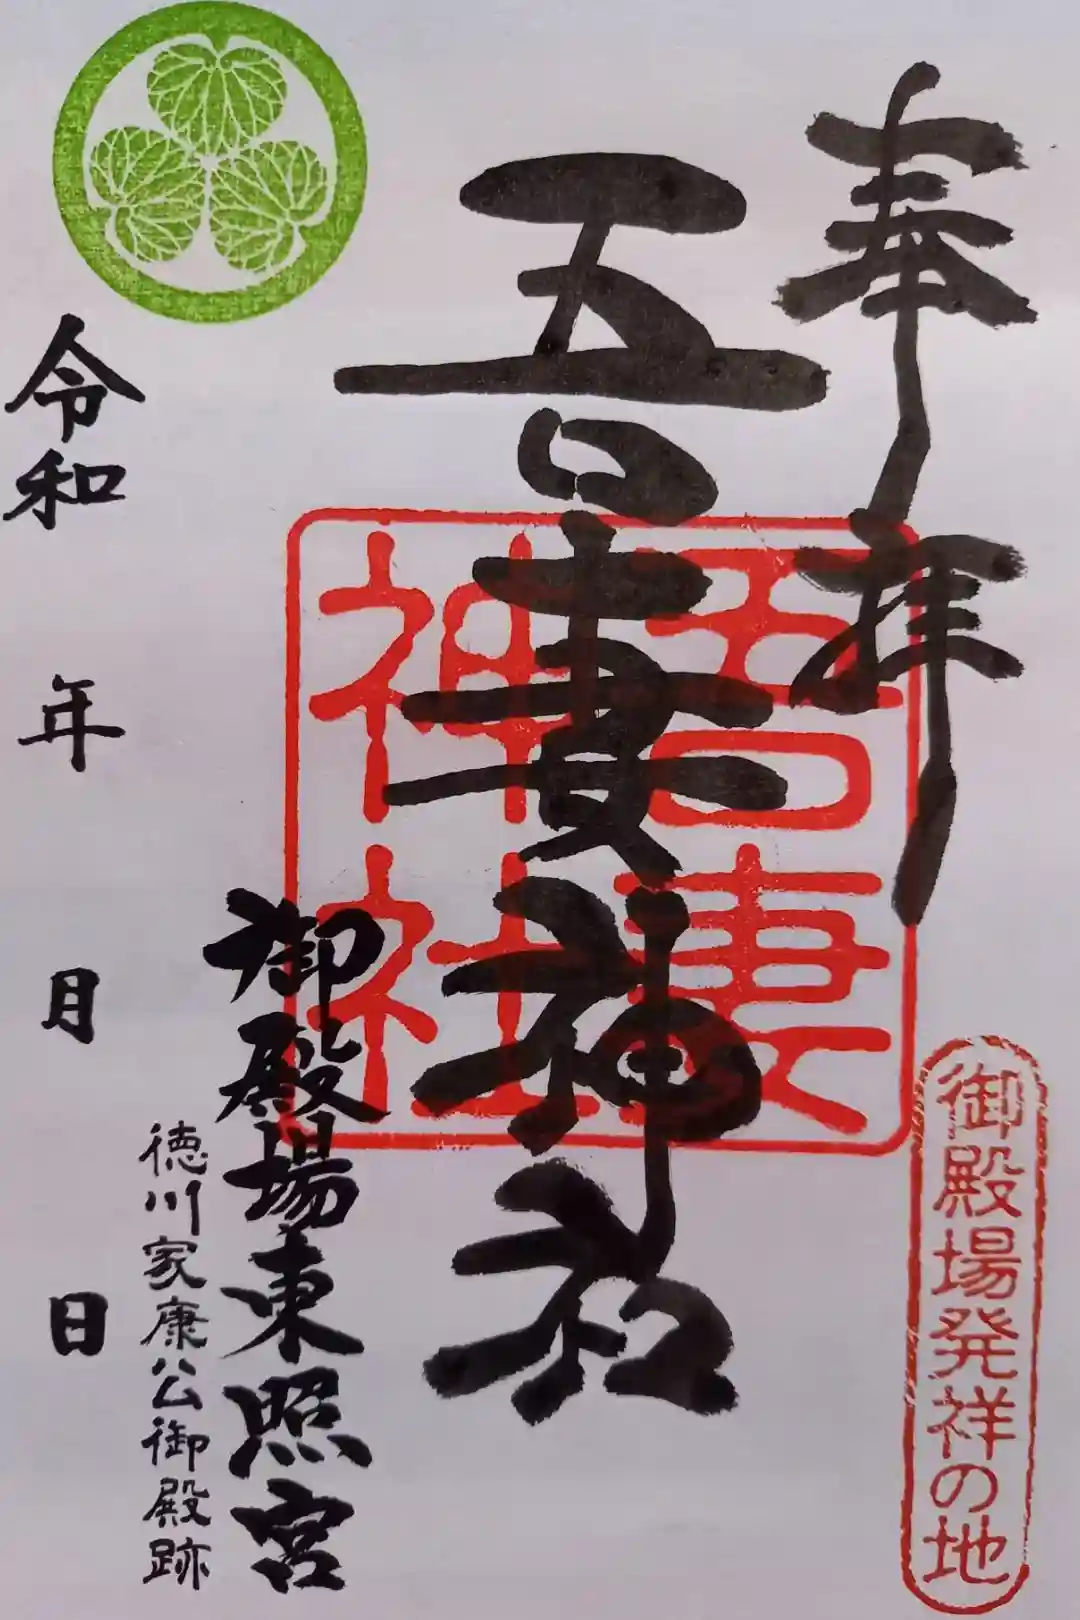 奉拝
御殿場発祥の地
吾妻神社
吾妻
神社
御殿場東照宮
徳川家康公御殿跡
令和 年 月 日